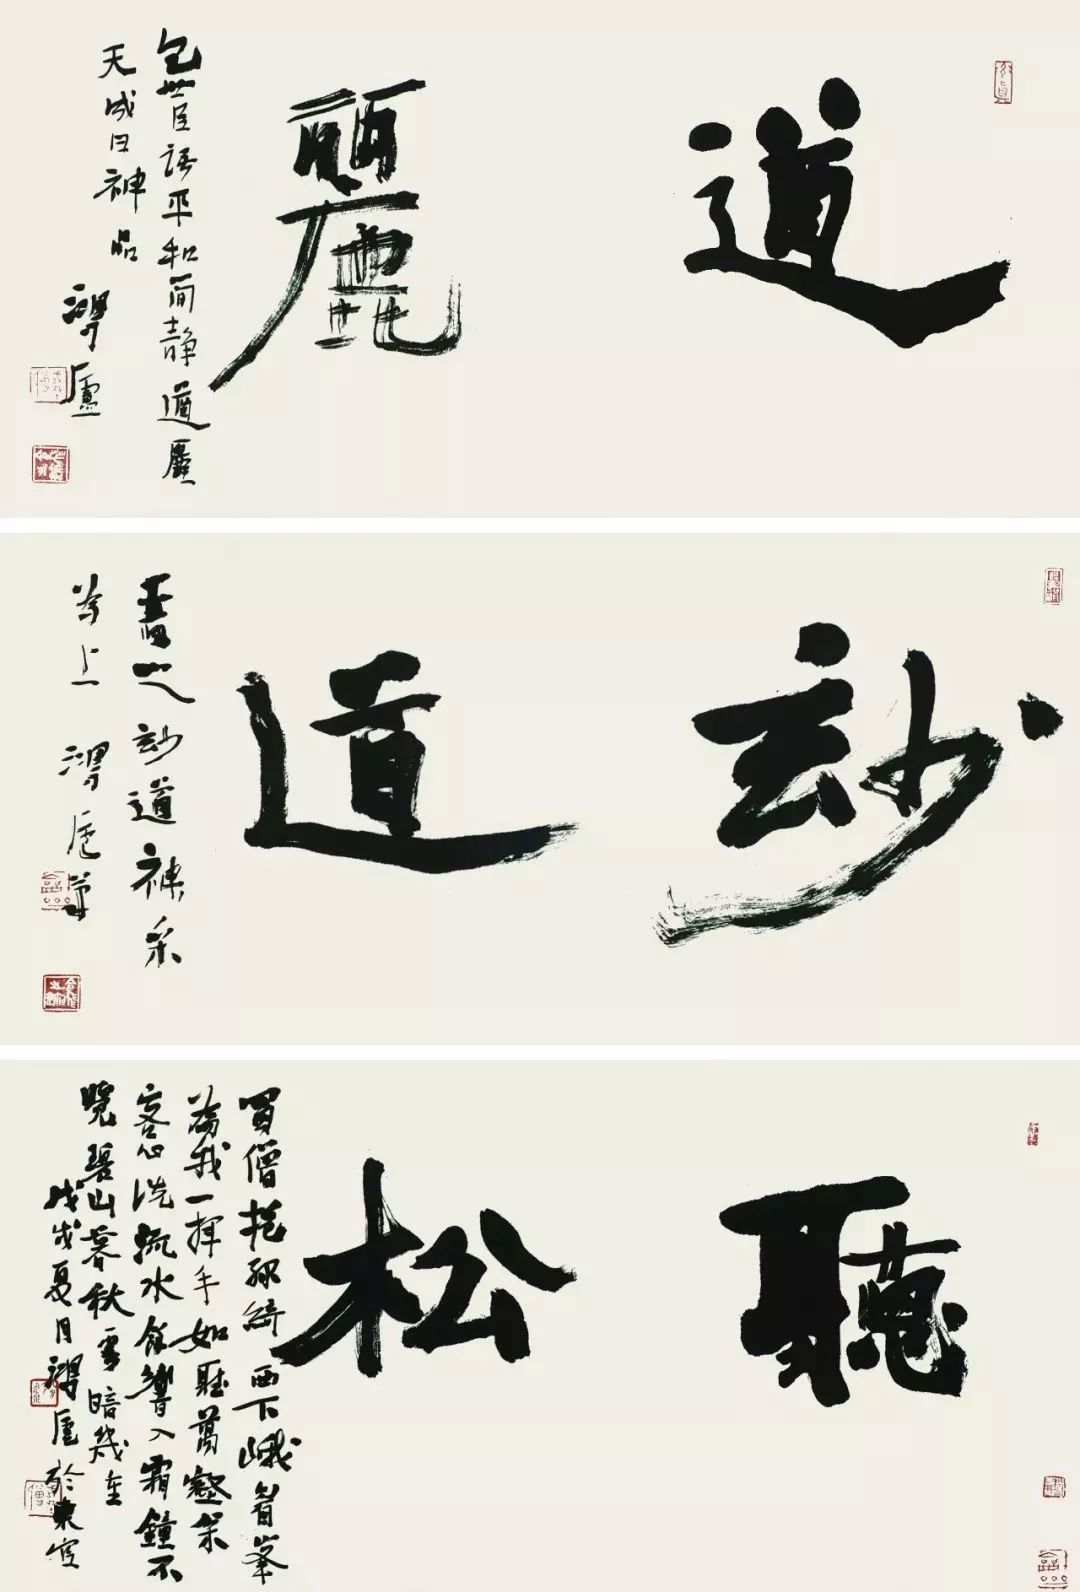 遒麗
包世臣語平和簡静遒麗
天成曰神品
廬
玅道
書之玅道神采
為上
廬
聽松
蜀僧抱緑綺西下峨眉峯
為我一揮手如聽萬壑松
客心洗流水餘響入霜鐘不
覺碧山暮秋雲暗幾重
戊戌夏月 廬於東窗